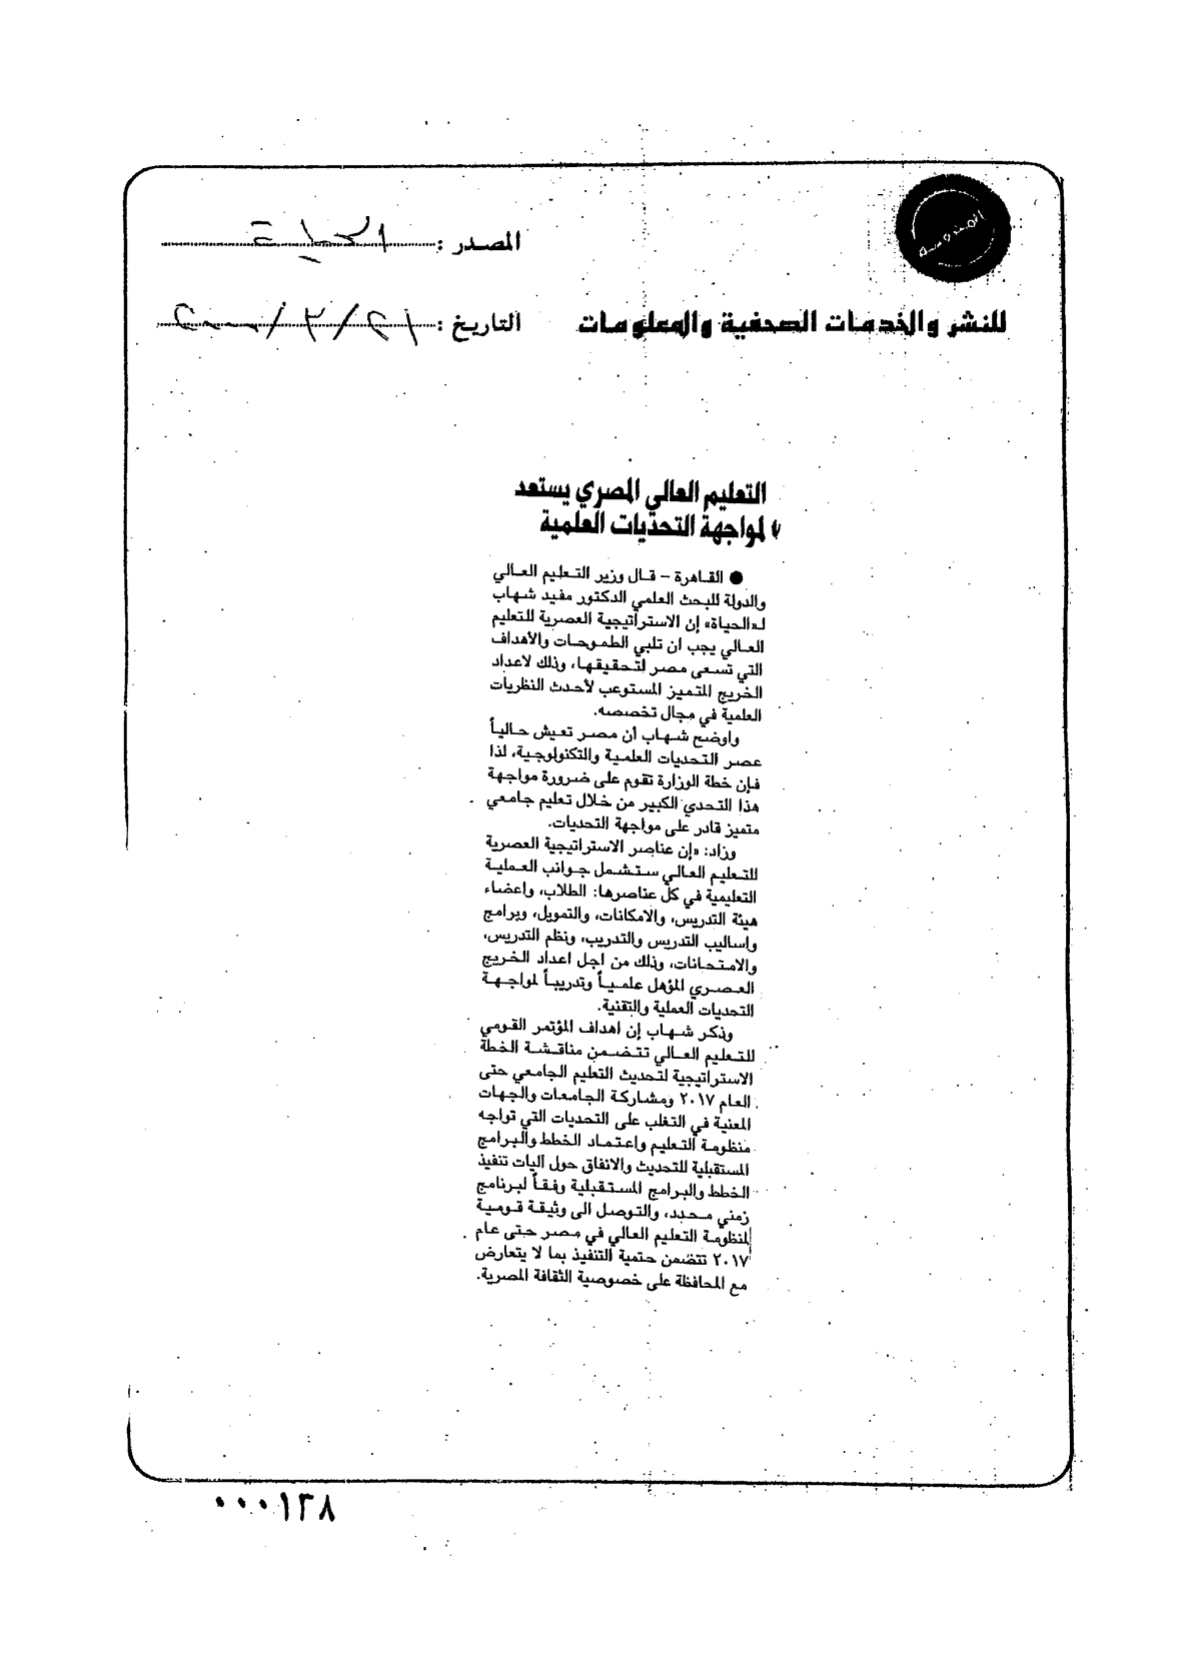 المصدر : الحياة
للنشر والخدمات الصحفية والمعلومات
التاريخ :
التعليم العالي المصري يستعد
لمواجهة التحديات العلمية
● القاهرة – قال وزير التعليم العالي
والدولة للبحث العلمي الدكتور مفيد شهاب
لـ«الحياة» إن الاستراتيجية العصرية للتعليم
العالي يجب ان تلبي الطموحات والأهداف
التي تسعى مصر لتحقيقها، وذلك لاعداد
الخريج المتميز المستوعب لأحدث النظريات
العلمية في مجال تخصصه.
واوضح شهاب أن مصر تعيش حالياً
عصر التحديات العلمية والتكنولوجية، لذا
فإن خطة الوزارة تقوم على ضرورة مواجهة
هذا التحدي الكبير من خلال تعليم جامعي
متميز قادر على مواجهة التحديات.
وزاد: «إن عناصر الاستراتيجية العصرية
للتعليم العالي ستشمل جوانب العملية
التعليمية في كل عناصرها: الطلاب، واعضاء
هيئة التدريس، والامكانات، والتمويل، وبرامج
واساليب التدريس والتدريب، ونظم التدريس،
والامتحانات، وذلك من اجل اعداد الخريج
العصري المؤهل علمياً وتدريباً لمواجهة
التحديات العملية والتقنية.
وذكر شهاب إن اهداف المؤتمر القومي
للتعليم العالي تتضمن مناقشة الخطة
الاستراتيجية لتحديث التعليم الجامعي حتى
العام ٢٠١٧ ومشاركة الجامعات والجهات
المعنية في التغلب على التحديات التي تواجه
منظومة التعليم واعتماد الخطط والبرامج
المستقبلية للتحديث والاتفاق حول آليات تنفيذ
الخطط والبرامج المستقبلية وفقاً لبرنامج
زمني محدد، والتوصل الى وثيقة قومية
لمنظومة التعليم العالي في مصر حتى عام
٢٠١٧ تتضمن حتمية التنفيذ بما لا يتعارض
مع المحافظة على خصوصية الثقافة المصرية.
٠٠٠١٣٨